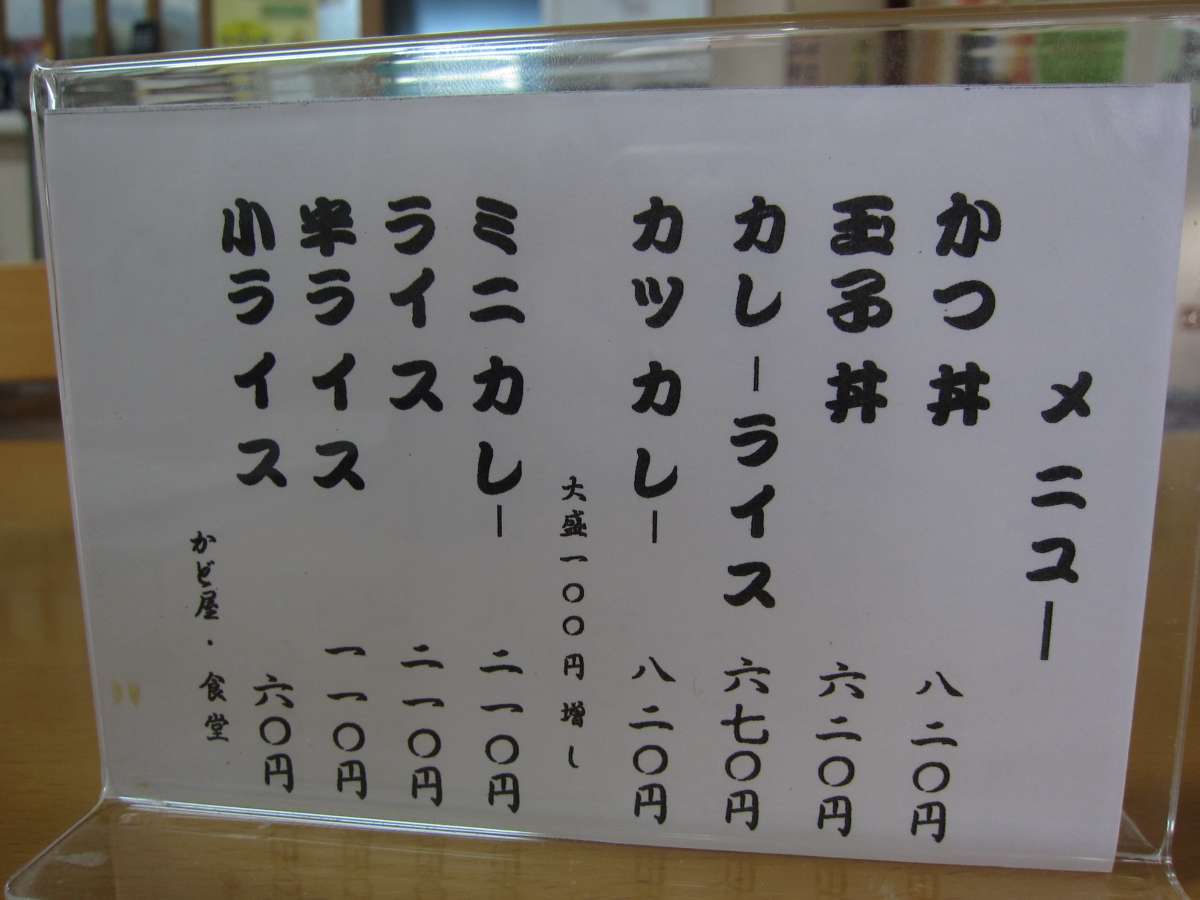 メニュー
かつ丼 八二〇円
玉子丼 六二〇円
カレーライス 六七〇円
カツカレー 八二〇円
大盛一〇〇円増し
ミニカレー 二一〇円
ライス 二一〇円
半ライス 一一〇円
小ライス 六〇円
かど屋・食堂